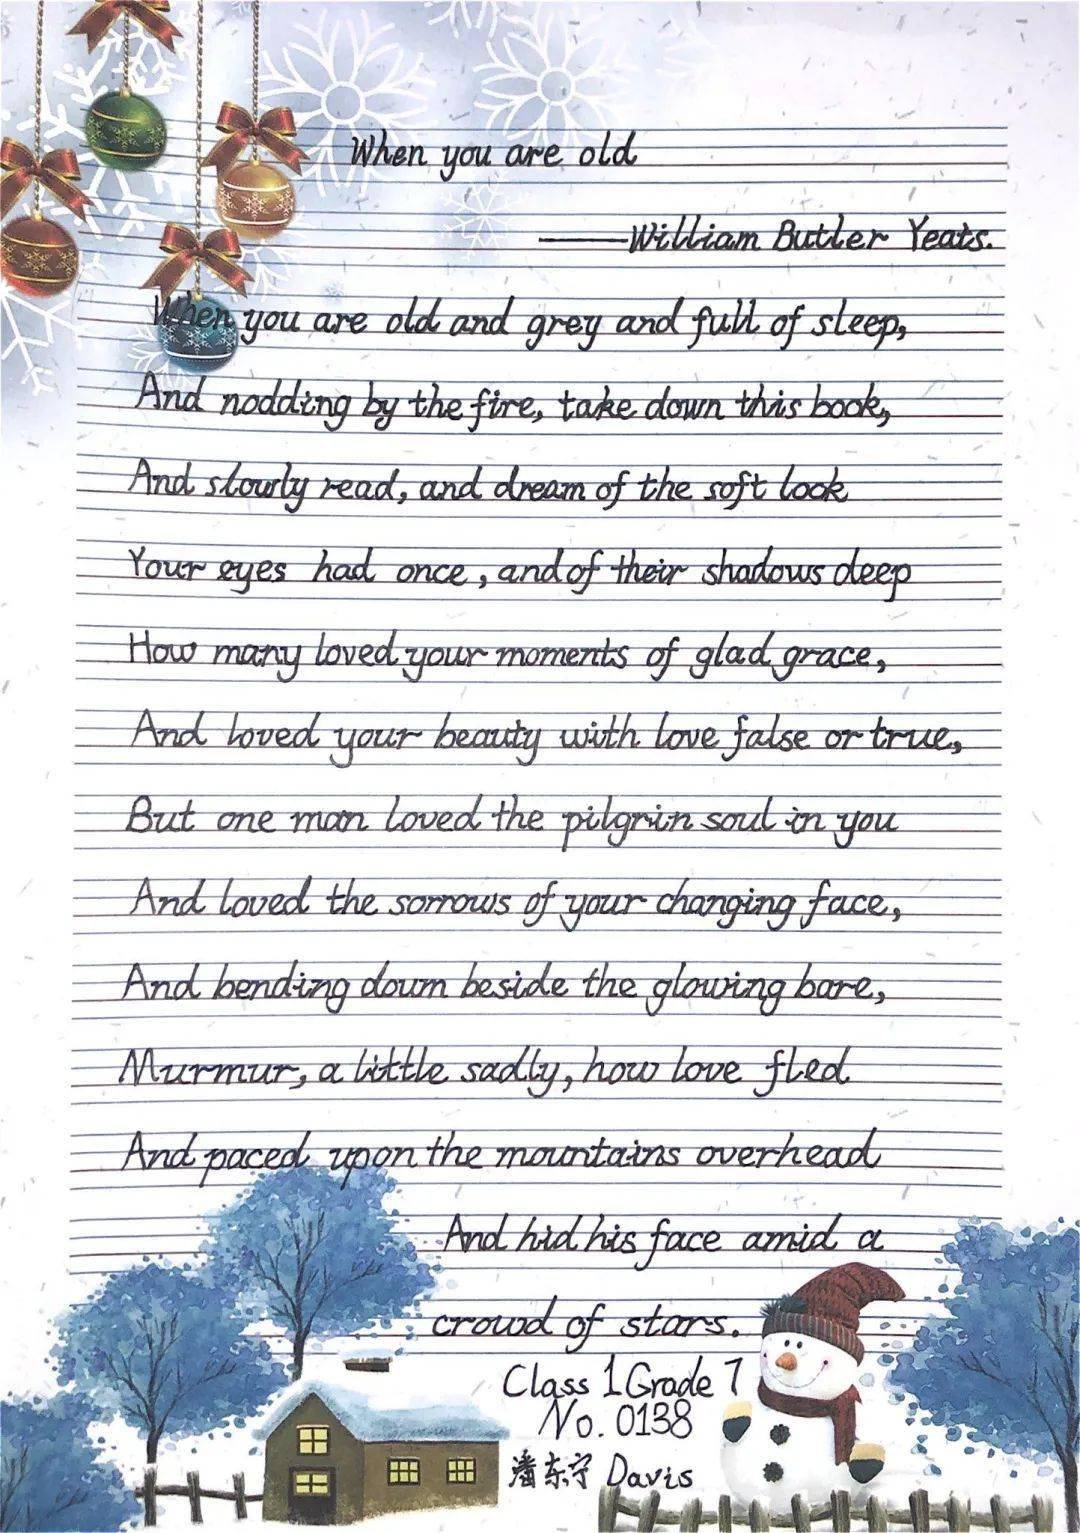 When you are old
——William Butler Yeats.
When you are old and grey and full of sleep,
And nodding by the fire, take down this book,
And slowly read, and dream of the soft look
Your eyes had once, and of their shadows deep
How many loved your moments of glad grace,
And loved your beauty with love false or true,
But one man loved the pilgrin soul in you
And loved the sorrows of your changing face,
And bending down beside the glowing bare,
Murmur, a little sadly, how love fled
And paced upon the mountains overhead
And hid his face amid a
crowd of stars.
Class 1 Grade 7
No. 0138
潘东宁 Davis